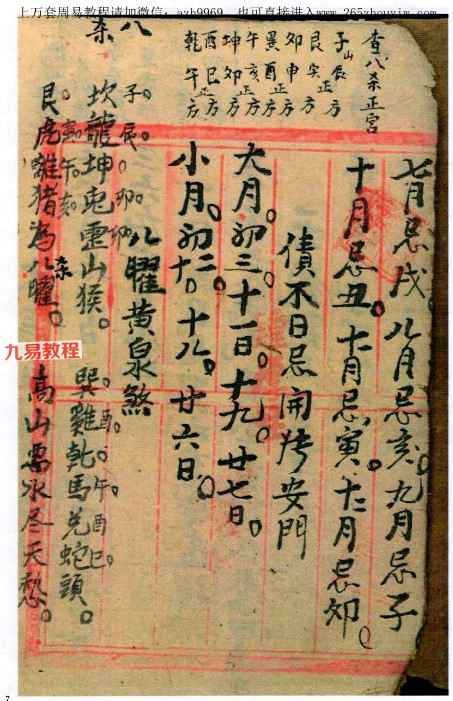 上万套周易教程请加微信:azh9969 也可直接进入www.265zhouyim.com
查八杀正宫
子山辰方
艮寅正方
卯申正方
巽酉正方
午亥正方
坤卯正方
酉巳正方
乾午方
七月忌戌。八月忌亥。九月忌子
十月忌丑。十一月忌寅。十二月忌卯。
债不日忌開 安門
大月。初三。十一日。十九。廿七日。
小月。初二。初十。十八。廿六日。
八曜黄泉煞
八杀
子。辰。卯。卯
坎龍坤兔震山猴。巽雞乾馬兑蛇頭。
酉。午。酉巳。
寅。午。亥
艮虎離猪為八曜。 高山 水冬天愁。
杀
九易教程
7